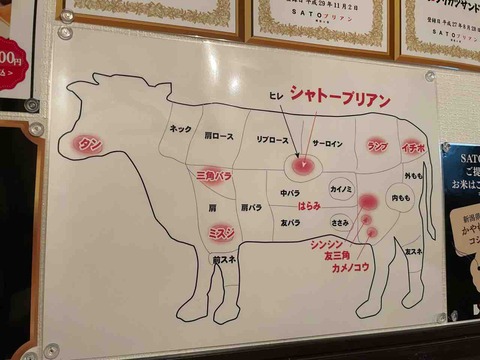 平成29年11月2日
SATOブリアン
平成27年8月28日
SATOブリアン
ヒレ
シャトーブリアン
タン
ネック
肩ロース
リブロース
サーロイン
ランプ
イチボ
三角バラ
肩
肩バラ
中バラ
はらみ
友バラ
カイノミ
ささみ
外もも
内もも
ミスジ
前スネ
シンシン
友三角
カメノコウ
友スネ
SATO
ご提
お米はこ
新潟県
かや
コシ
00円